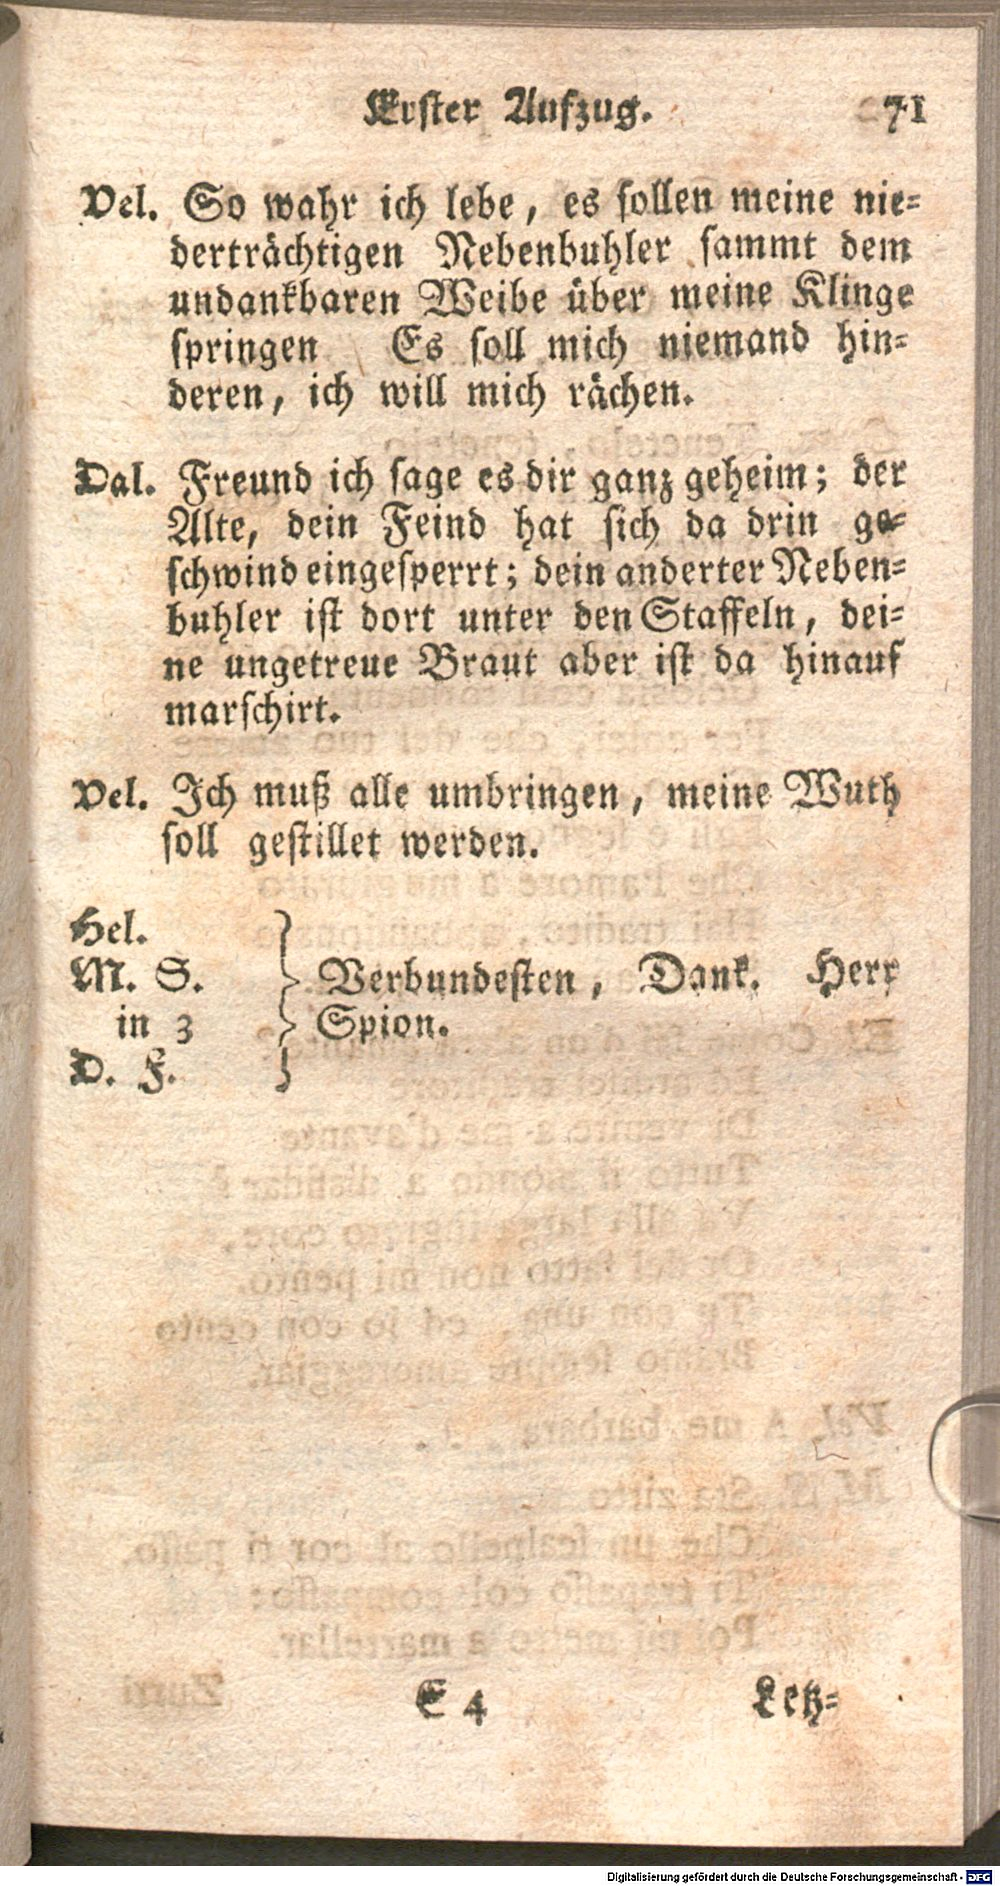 Erster Aufzug. 71
Vel. So wahr ich lebe, es sollen meine nie-
derträchtigen Nebenbuhler sammt dem
undankbaren Weibe über meine Klinge
springen Es soll mich niemand hin-
deren, ich will mich rächen.
Dal. Freund ich sage es dir ganz geheim; der
Alte, dein Feind hat sich da drin ge-
schwind eingesperrt; dein anderter Neben-
buhler ist dort unter den Staffeln, dei-
ne ungetreue Braut aber ist da hinauf
marschirt.
Vel. Ich muß alle umbringen, meine Wuth
soll gestillet werden.
Hel.
M. S. } Verbundesten, Dank. Herr
in 3 } Spion.
D. F.
E 4 Letz-
Digitalisierung gefördert durch die Deutsche Forschungsgemeinschaft - DFG